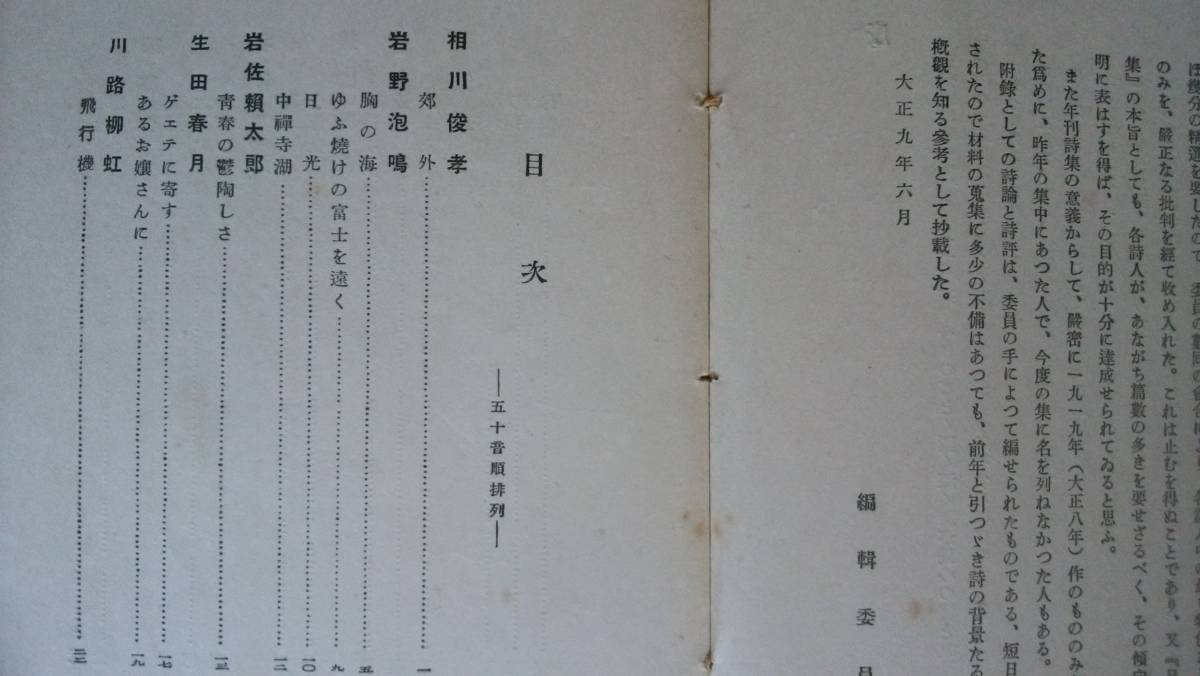 のみを、嚴正なる批判を經て收め入れた。これは止むを得ぬことであり、又『
集』の本旨としても、各詩人が、あながち篇數の多きを要せざるべく、その傾向
明に表はすを得ば、その目的が十分に達成せられてゐると思ふ。
また年刊詩集の意義からして、嚴密に一九一九年（大正八年）作のもののみ
た爲めに、昨年の集中にあつた人で、今度の集に名を列ねなかつた人もある。
附錄としての詩論と詩評は、委員の手によつて編せられたものである、短日
されたので材料の蒐集に多少の不備はあつても、前年と引つゞき詩の背景たる
槪觀を知る參考として抄載した。
大正九年六月
編輯委員
目次
―五十音順排列―
相川俊孝
郊外……………一
岩野泡鳴
胸の海……………五
ゆふ燒けの富士を遠く……………九
日光……………一〇
中禪寺湖……………一二
岩佐賴太郞
靑春の鬱陶しさ……………一三
生田春月
ゲェテに寄す……………一七
あるお孃さんに……………一九
川路柳虹
飛行機……………二二